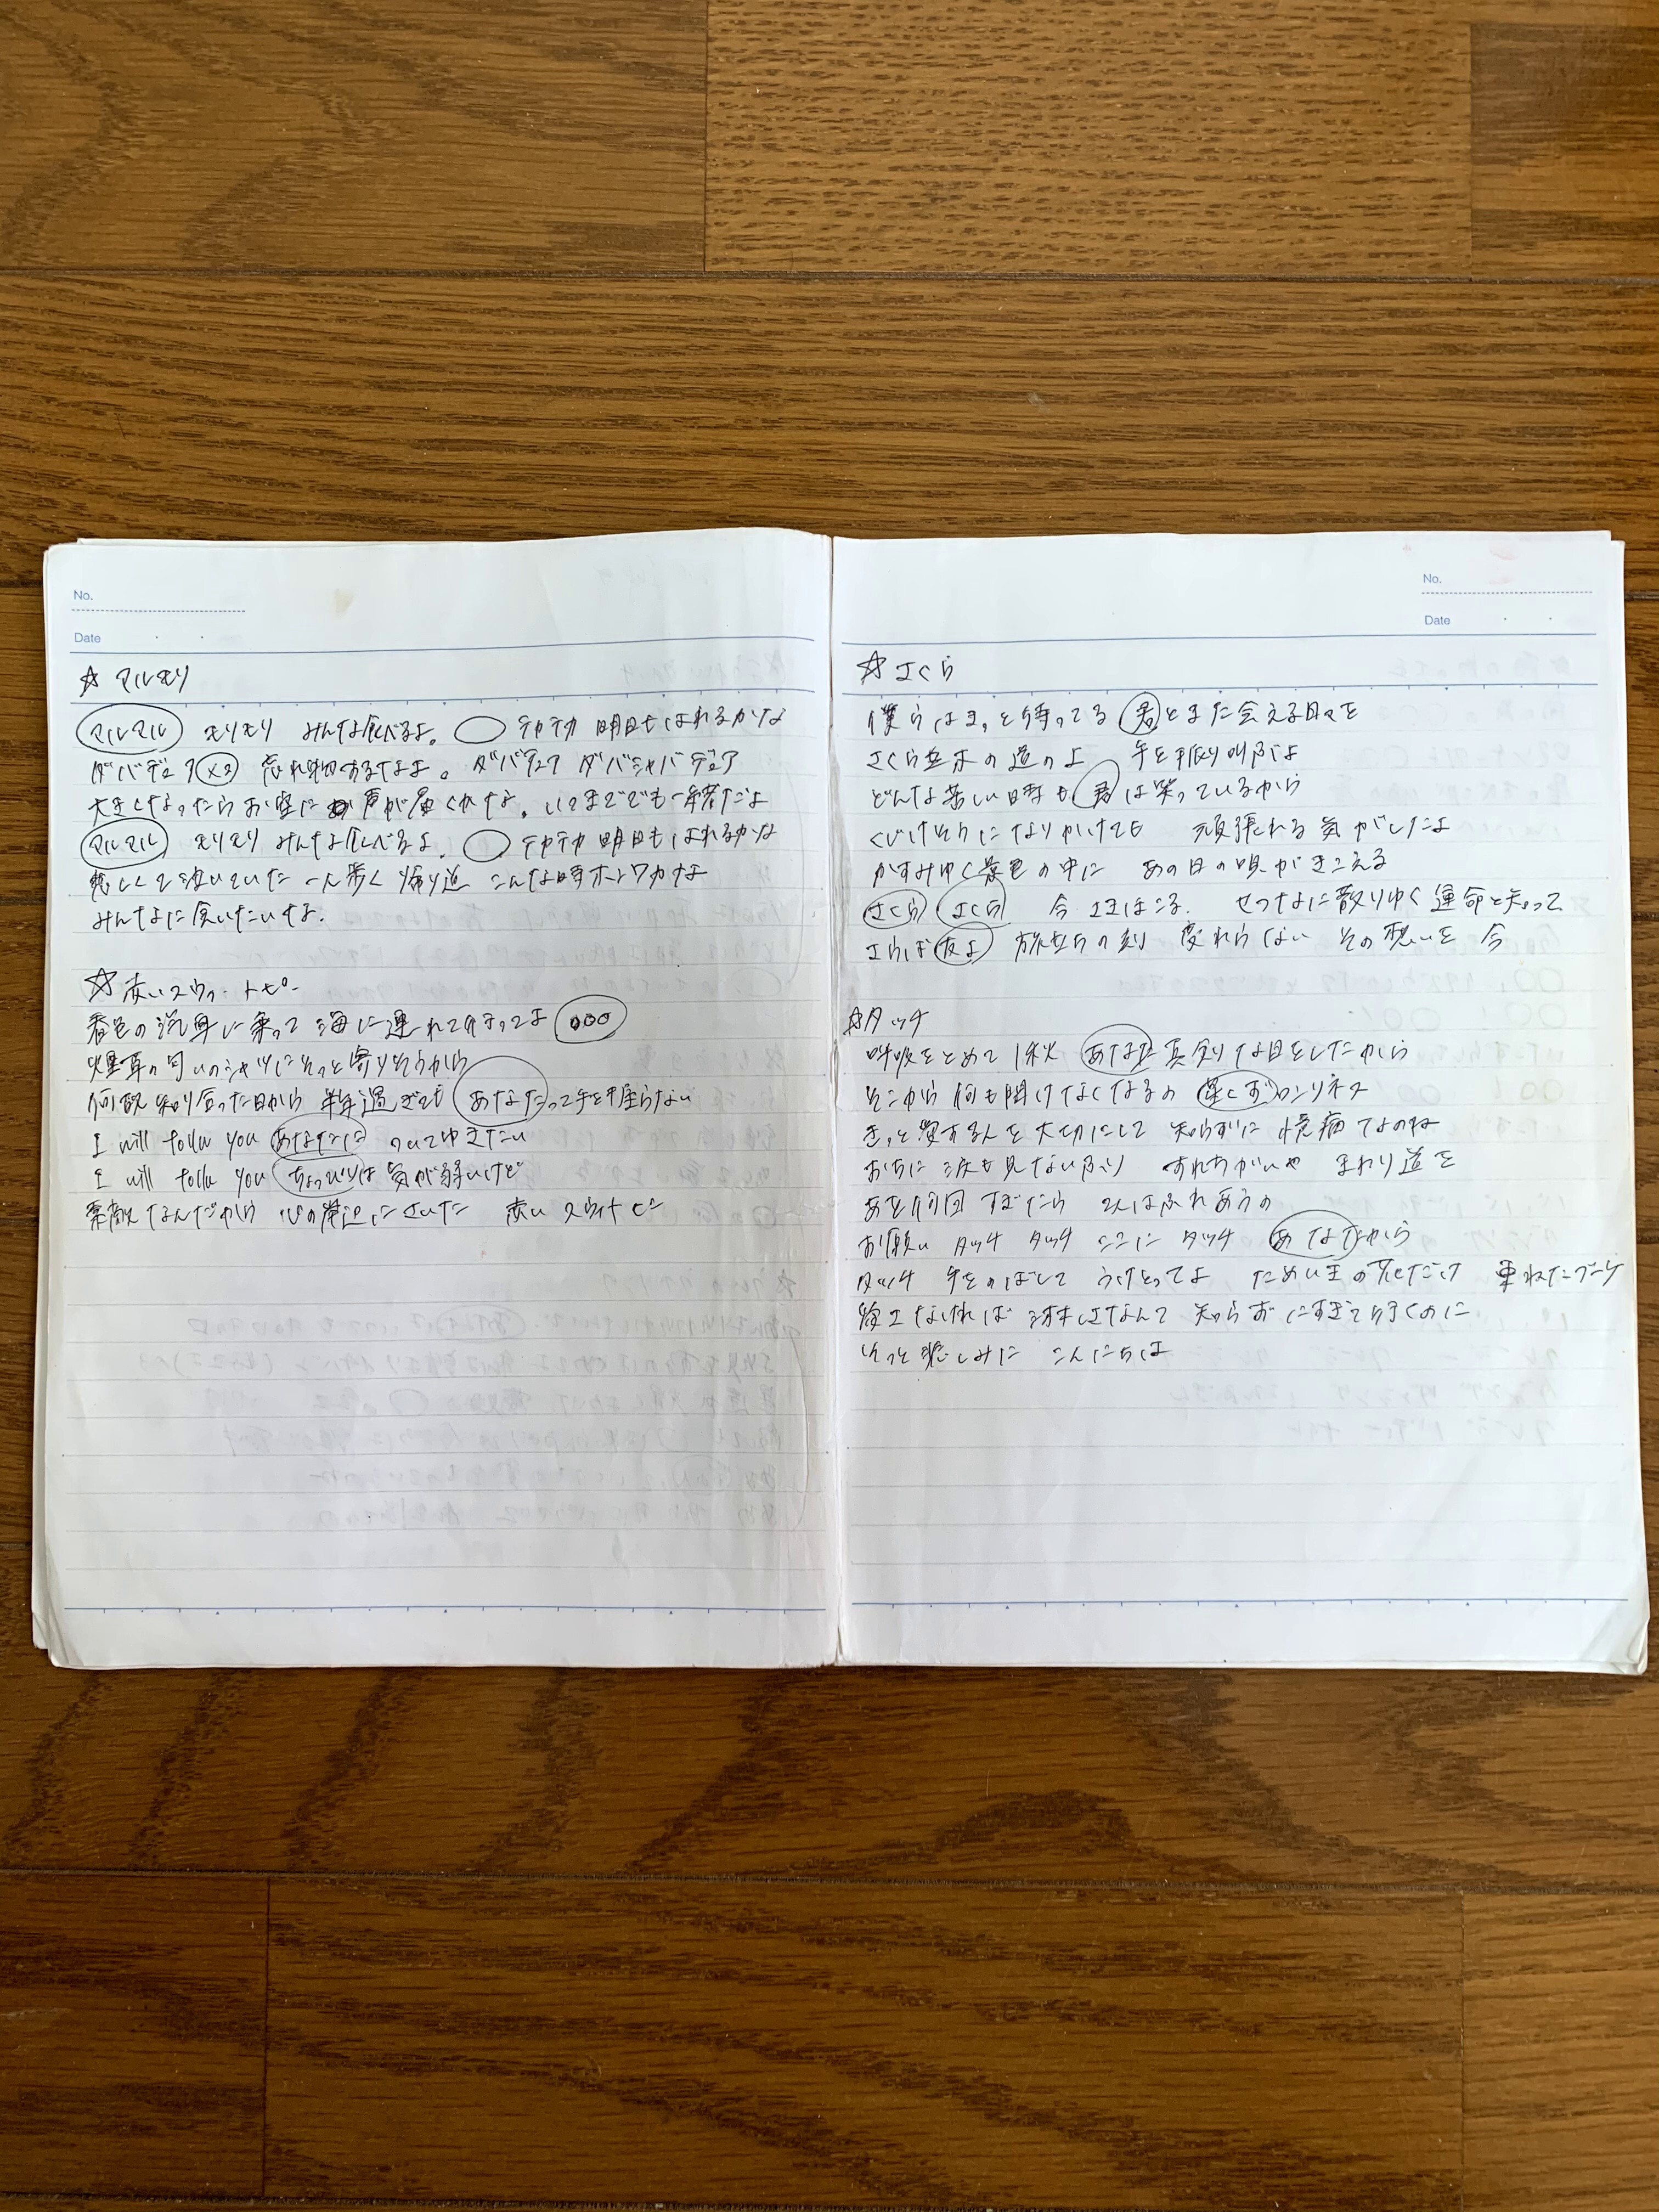 No.
Date
☆ マルモリ
マルマル モリモリ みんな食べるよ。 ◯ テカテカ 明日もはれるかな
ダバデュア ×2 忘れ物するなよ。 ダバデュア ダバシャバデュア
大きくなったらお空に声が届くかな。いつまでも一緒だよ
マルマル モリモリ みんな食べるよ。 ◯ テカテカ 明日もはれるかな
悲しくて泣いていた 一人歩く帰り道 こんな時
みんなに会いたいすよ。
☆ 赤いスウィートピー
春色の汽車に乗って 海に連れて行ってよ ○○○
煙草の匂いのシャツにそっと寄りそうから
何故知り合った日から 半年過ぎても あなたって手も握らない
I will follu you あなたに ついてゆきたい
I will follu you ちょっぴりは気が弱いけど
素敵なんだから 心の岸辺にさいた 赤い スウィトピー
No.
Date
☆ さくら
僕らはきっと待ってる 君とまた会える日々を
さくら並木の道のよ 手を振り叫ぶよ
どんな苦しい時も 君は笑っているから
くじけそうになりかけても 頑張れる気がしたよ
かすみゆく景色の中に あの日の唄がきこえる
さくら さくら 今 さきほこる せつなに散りゆく 運命と知って
さらば 友よ 旅立ちの刻 変わらない その想いを 今
☆タッチ
呼吸をとめて 1秒 あなた 真剣な目をしたから
そこから何も聞けなくなるの 星くず ロンリネス
きっと愛する人を大切にして 知らずに 憶病なのね
おちた涙も見ないふり すれちがいや まわり道を
あと何回 すぎたら 2人はふれあうの
お願い タッチ タッチ ここに タッチ あなたから
タッチ 手をのばして うけとってよ ためいきの花だけ 束ねたブーケ
そっと悲しみに こんにちは